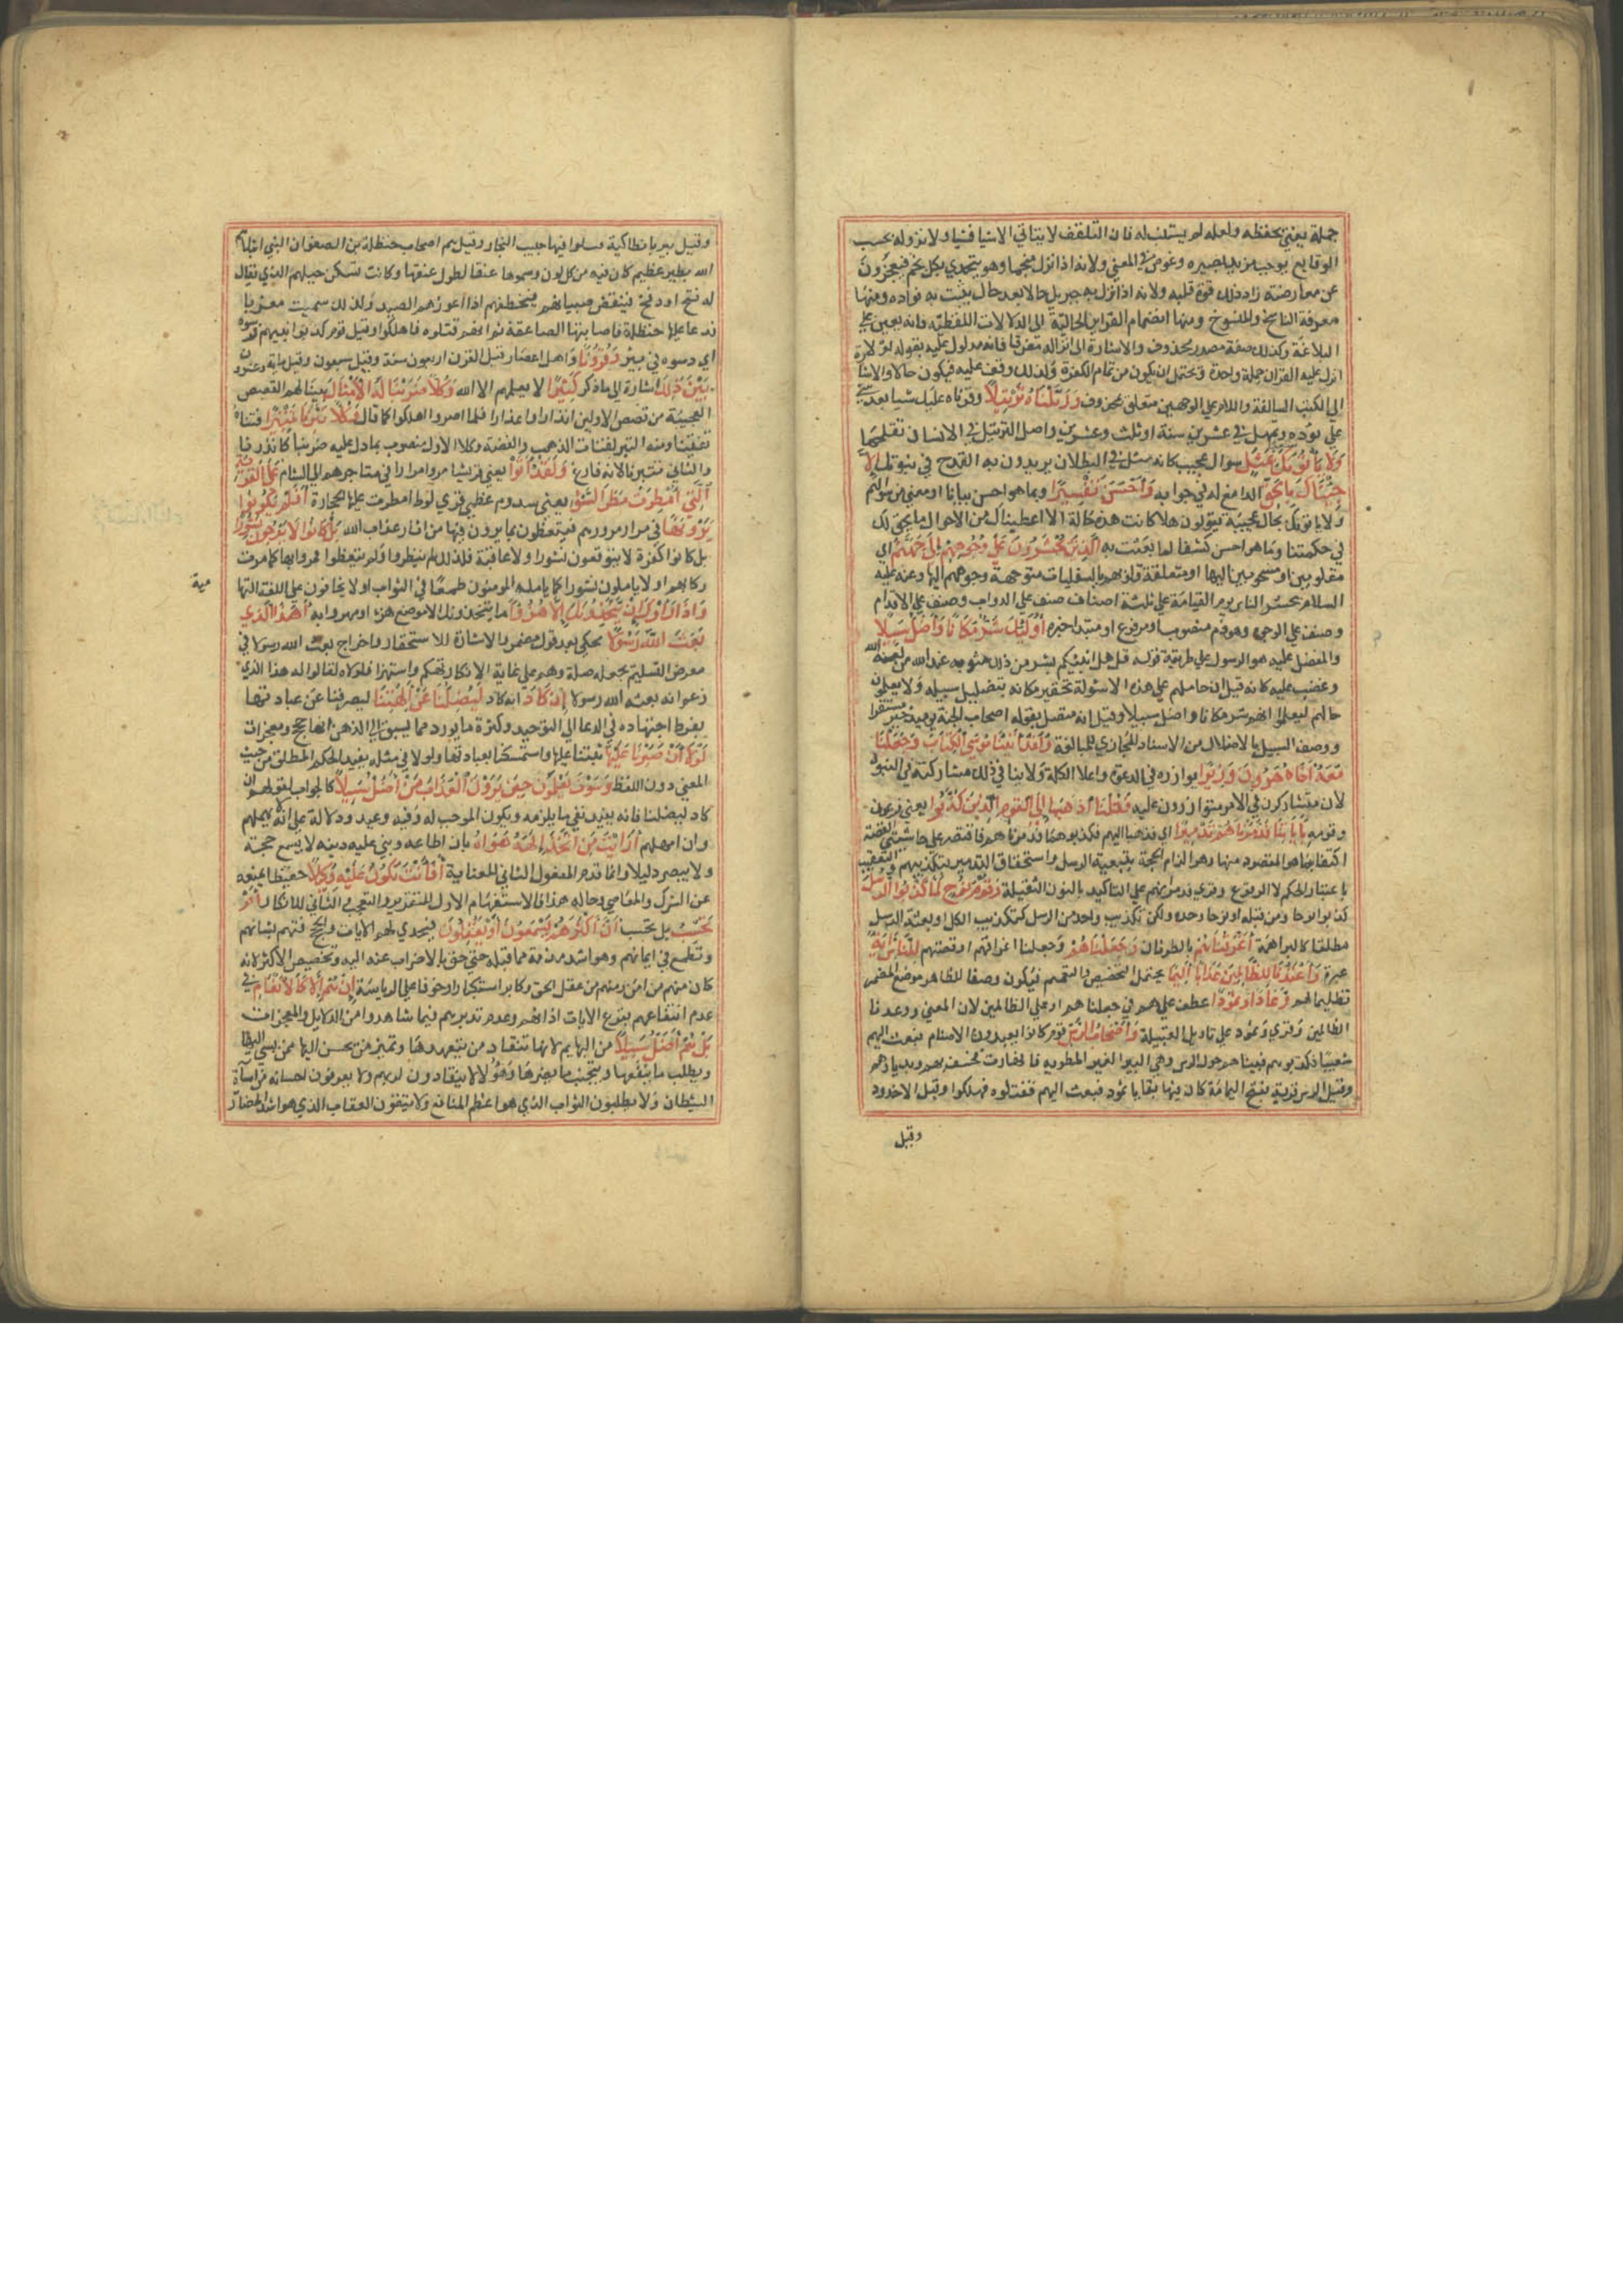 جملة يعني بحفظه ولعله لم يستتب له فان التلقف لا يتاتي الا شيا فشيا ولان نزوله بحسب
الوقايع يوجب مزيد بصيره وغوص في المعني ولانه اذا نزل منجما وهو يتحدي بكل نجم فيعجزون
عن معارضته زاد ذلك قوة قلبه ولانه اذا نزل به جبريل حالا بعد حال يثبت به فواده ومنها
معرفة الناسخ والمنسوخ ومنها انضمام القراين الحالية الي الدلالات اللفظية فانه يعين علي
البلاغة وكذلك صفة مصدر محذوف والاشارة الي انزاله متفرقا فانه مدلول عليه بقوله لولا
انزل عليه القران جملة واحدة ويحتمل ان يكون من تمام كلام الكفرة ولذلك وقف عليه فيكون حالا والاشا
الي الكتب السالفة واللام علي الوجهين متعلق بمحذوف وَرَتَّلْنَاهُ تَرْتِيلًا وقراناه عليك شيا بعد شي
علي تؤده وتمهل في عشرين سنة او ثلث وعشرين واصل الترتيل في الاسنان تفليجها
وَلَا يَأْتُونَكَ بِمَثَلٍ سوال عجيب كانه مثل في البطلان يريدون به القدح في نبوتك إِلَّا
جِئْنَاكَ بِالْحَقِّ الدامغ له في جوابه وَأَحْسَنَ تَفْسِيرًا وبما هو احسن بيانا او معني من سوالهم
ولا ياتونك بحال عجيبة يقولون هلا كانت هذه حاله الا اعطيناك من الاحوال ما يحق لك
في حكمتنا وما هو احسن كشفا لما بعثت به الَّذِينَ يُحْشَرُونَ عَلَى وُجُوهِهِمْ إِلَى جَهَنَّمَ اي
مقلوبين او مسحوبين اليها او متعلقة قلوبهم بالسفليات متوجهة وجوههم اليها وعنه عليه
السلام يحشر الناس يوم القيامة علي ثلثة اصناف صنف علي الدواب وصنف علي الاقدام
وصنف علي الوجوه وهو ذم منصوب او مرفوع او مبتدا خبره أُولَئِكَ شَرٌّ مَكَانًا وَأَضَلُّ سَبِيلًا
والمفضل عليه هو الرسول علي طريقة قوله قل هل انبئكم بشر من ذلك مثوبة عند الله من لعنه الله
وغضب عليه كانه قيل ان حاملهم علي هذه الاسولة تحقير مكانه بتضليل سبيله ولا يعلمون
حالهم ليعلموا انهم شر مكانا واضل سبيلا وقيل انه متصل بقوله اصحاب الجنة يوميذ خير مستقرا
ووصف السبيل بالاضلال من الاسناد المجازي للمبالغة وَلَقَدْ آتَيْنَا مُوسَى الْكِتَابَ وَجَعَلْنَا
مَعَهُ أَخَاهُ هَارُونَ وَزِيرًا يوازره في الدعوة واعلا الكلمة ولا ينافي ذلك مشاركته في النبوة
لان المتشاركين في الامر متوازرون عليه فَقُلْنَا اذْهَبَا إِلَى الْقَوْمِ الَّذِينَ كَذَّبُوا يعني فرعون
وقومه بِآيَاتِنَا فَدَمَّرْنَاهُمْ تَدْمِيرًا اي فذهبا اليهم فكذبوهما فدمرناهم فاقتصر علي حاشيتي القصة
اكتفا بما هو المقصود منها وهو الزام الحجة ببعثة الرسل واستحقاق التدمير بتكذيبهم والتعقيب
باعتبار الحكم لا الوقوع وقري فدمرانهم علي التاكيد بالنون الثقيلة وَقَوْمَ نُوحٍ لَمَّا كَذَّبُوا الرُّسُلَ
كذبوا نوحا ومن قبله او نوحا وحده ولكن تكذيب واحد من الرسل كتكذيب الكل او بعثة الرسل
مطلقا كالبراهمة أَغْرَقْنَاهُمْ بالطوفان وَجَعَلْنَاهُمْ وجعلنا اغراقهم او قصتهم لِلنَّاسِ آيَةً
عبرة وَأَعْتَدْنَا لِلظَّالِمِينَ عَذَابًا أَلِيمًا يحتمل التخصيص والتعميم فيكون وصفا للظاهر موضع المضمر
تظليما لهم وَعَادًا وَثَمُودًا عطف علي هم في جعلناهم او علي الظالمين لان المعني ووعدنا
الظالمين وقري وثمود علي تاويل القبيلة وَأَصْحَابَ الرَّسِّ قوم كانوا يعبدون الاصنام فبعث اليهم
شعيبا فكذبوه فبينا هم حول الرس وهي البير الغير المطوية فانهارت فخسف بهم وبديارهم
وقيل الرس قرية بفلج اليمامة كان فيها بقايا ثمود فبعث اليهم فقتلوه فهلكوا وقيل الاخدود
وقيل
وقيل بير بانطاكية قتلوا فيها حبيب النجار وقيل هم اصحاب حنظلة بن صفوان النبي ابتلاهم
الله بطير عظيم كان فيه من كل لون وسموها عنقا لطول عنقها وكانت تسكن جبلهم الذي يقال
له فتخ او دمخ فتنقض صبيانهم فتخطفهم اذا اعوزهم الصيد ولذلك سميت مغربا
فدعا عليها حنظلة فاصابتها الصاعقة ثم انهم قتلوه فاهلكوا وقيل قوم كذبوا نبيهم ورسوه
اي دسوه في بير وَقُرُونًا واهل اعصار قيل القرن اربعون سنة وقيل سبعون وقيل ماية وعشرون
بَيْنَ ذَلِكَ اشارة الي ما ذكر كَثِيرًا لا يعلمهم الا الله وَكُلًّا ضَرَبْنَا لَهُ الْأَمْثَالَ بينا لهم القصص
العجيبة من قصص الاولين انذارا واعذارا فلما اصروا اهلكوا كما قال وَكُلًّا تَبَّرْنَا تَتْبِيرًا فتتناه
تفتيتا ومنه التبر لفتات الذهب والفضة وكلا الاول منصوب بما دل عليه ضربنا كانذرنا
والثاني بتبرنا لانه فارغ وَلَقَدْ أَتَوْا يعني قريشا مروا مرارا في متاجرهم الي الشام عَلَى الْقَرْيَةِ
الَّتِي أُمْطِرَتْ مَطَرَ السَّوْءِ يعني سدوم عظمي قري لوط امطرت عليها الحجارة أَفَلَمْ يَكُونُوا
يَرَوْنَهَا في مرار مرورهم فيتعظون بما يرون فيها من اثار عذاب الله بَلْ كَانُوا لَا يَرْجُونَ نُشُورًا
بل كانوا كفرة لا يتوقعون نشورا ولا عاقبة فلذلك لم ينظروا ولم يتعظوا فمروا بها كما مرت
ركابهم او لا ياملون نشورا كما يامله المومنون طمعا في الثواب او لا يخافون علي اللغة التها
مية
وَإِذَا رَأَوْكَ إِنْ يَتَّخِذُونَكَ إِلَّا هُزُوًا ما يتخذونك الا موضع هزء او مهزوا به أَهَذَا الَّذِي
بَعَثَ اللَّهُ رَسُولًا محكي بعد قول مضمر والاشارة للاستحقار واخراج بعث الله رسولا في
معرض التسليم بجعله صلة وهم علي غاية الانكار تهكم واستهزا ولولاه لقالوا اهذا الذي
زعم انه بعثه الله رسولا إِنْ كَادَ انه كاد لَيُضِلُّنَا عَنْ آلِهَتِنَا ليصرفنا عن عبادتها
بفرط اجتهاده في الدعا الي التوحيد وكثرة ما يورد مما يسبق الي الذهن انها حجج ومعجزات
لَوْلَا أَنْ صَبَرْنَا عَلَيْهَا ثبتنا عليها واستمسكنا بعبادتها ولولا في مثله يقيد الحكم المطلق من حيث
المعني دون اللفظ وَسَوْفَ يَعْلَمُونَ حِينَ يَرَوْنَ الْعَذَابَ مَنْ أَضَلُّ سَبِيلًا كالجواب لقولهم ان
كاد ليضلنا فانه يفيد نفي ما يلزمه ويكون الموجب له وفيه وعيد ودلالة علي انه لا يهملهم
وان امهلهم أَرَأَيْتَ مَنِ اتَّخَذَ إِلَهَهُ هَوَاهُ بان اطاعه وبني عليه دينه لا يسمع حجة
ولا يبصر دليلا وانما قدم المفعول الثاني للعناية أَفَأَنْتَ تَكُونُ عَلَيْهِ وَكِيلًا حفيظا تمنعه
عن الشرك والمعاصي وحاله هذا فالاستفهام الاول للتقرير والتعجيب والثاني للانكار أَمْ
تَحْسَبُ بل تحسب أَنَّ أَكْثَرَهُمْ يَسْمَعُونَ أَوْ يَعْقِلُونَ فيجدي لهم الايات والحجج فتهتم بشانهم
وتطمع في ايمانهم وهو اشد مذمة مما قبله حتي حق بالاضراب عنه اليه وتخصيص الاكثر لانه
كان منهم من امن ومنهم من عقل الحق وكابر استكبارا وخوفا علي الرياسة إِنْ هُمْ إِلَّا كَالْأَنْعَامِ في
عدم انتفاعهم بقرع الايات اذانهم وعدم تدبرهم فيما شاهدوا من الدلايل والمعجزات
بَلْ هُمْ أَضَلُّ سَبِيلًا من البهايم لانها تنقاد من يتعهدها وتميز من يحسن اليها ممن يسي اليها
ويطلب ما ينفعها ويتجنب ما يضرها وهؤلا لا ينقادون لربهم ولا يعرفون احسانه من اساة
الشيطان ولا يطلبون الثواب الذي هو اعظم المنافع ولا يتقون العقاب الذي هو اشد المضار